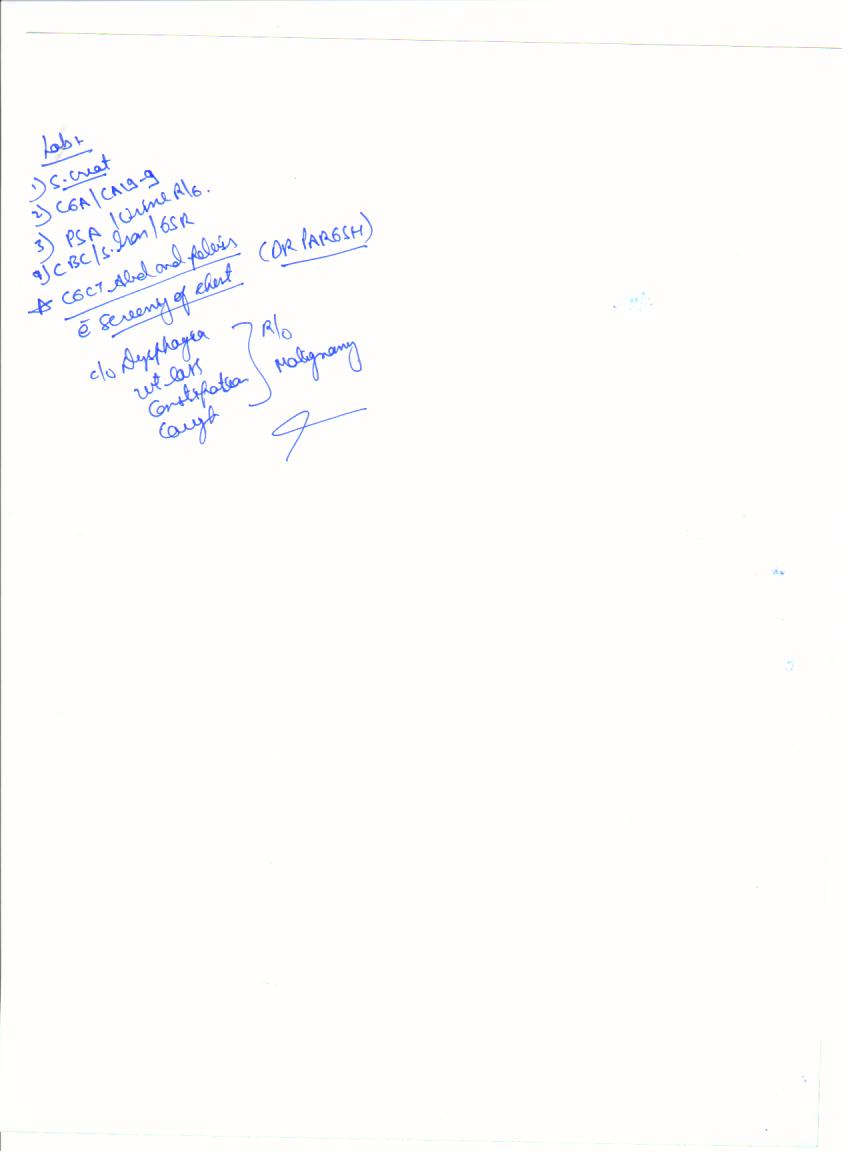 Lab+
1) S. Creat
2) CEA / CA19-9
3) PSA / Urine R/E.
4) CBC / S. Iron / ESR
* CECT Abd and Pelvis (DR PARESH)
c̄ Screeny of chest
c/o Dysphagea } R/o
wt loss Malignany
Constipation
Cough